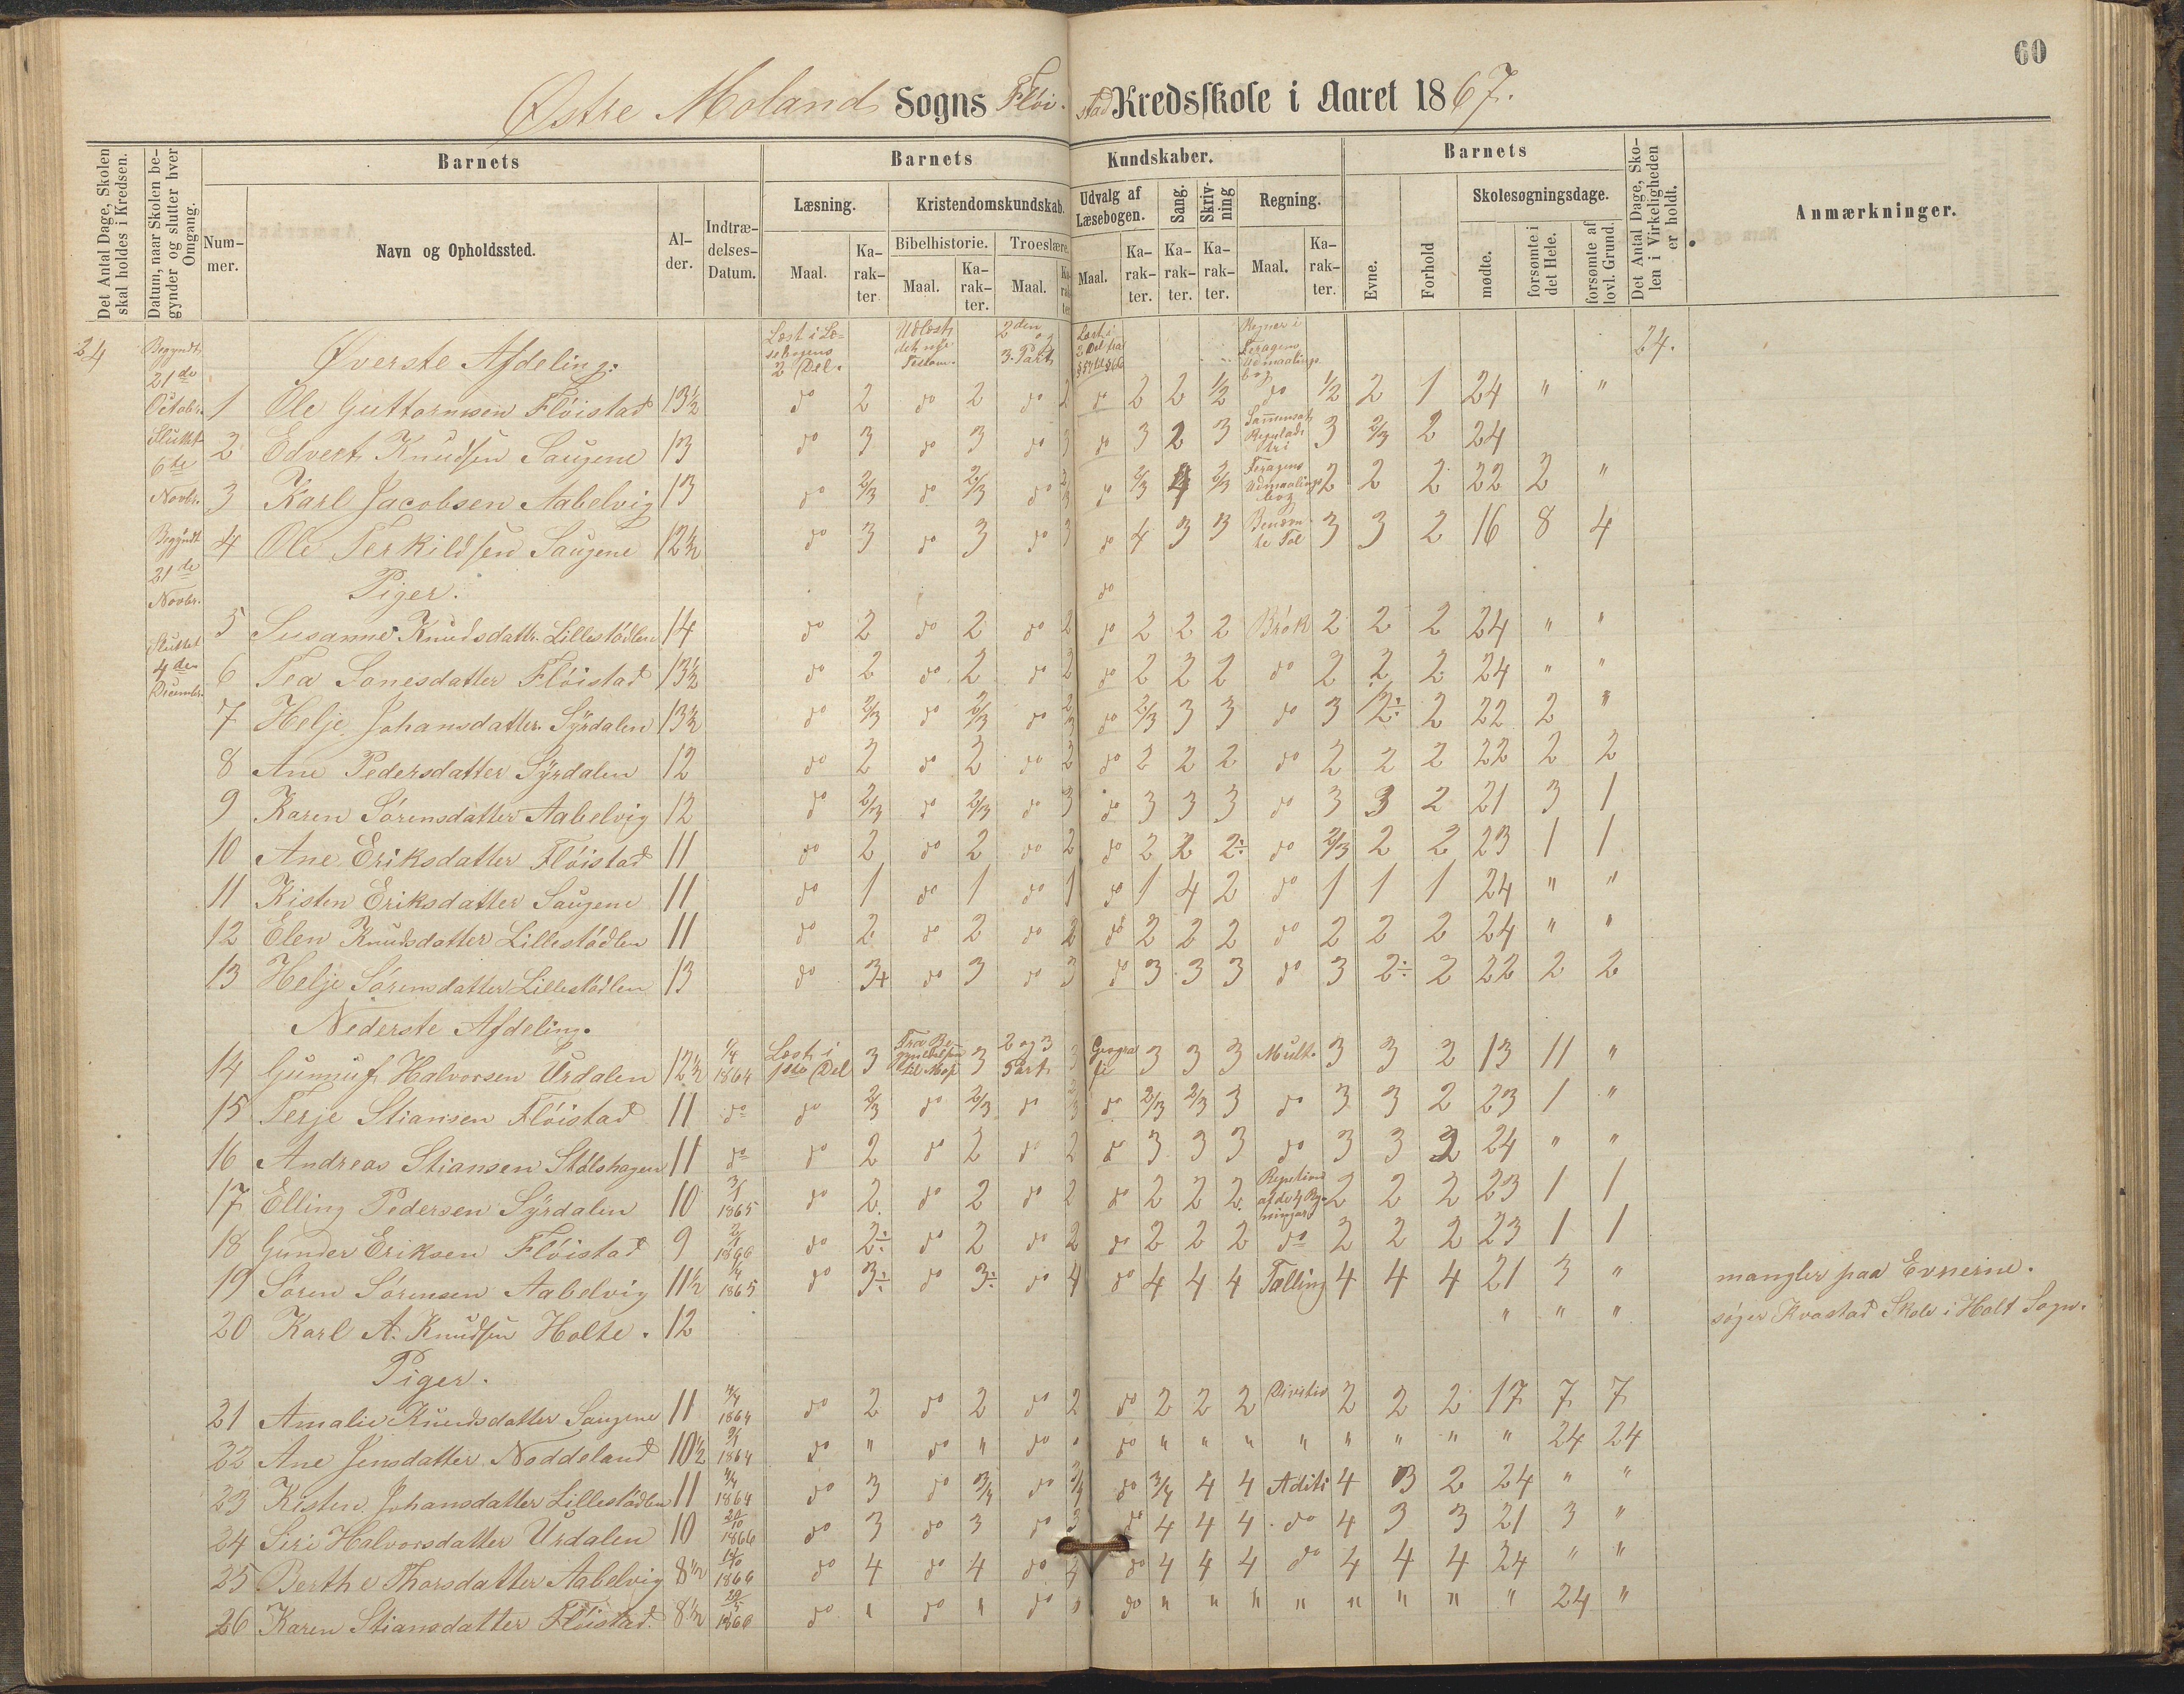 60
Østre Moland Sogns Flöi- stad Kredsskole i Aaret 1867.
Det Antal Dage, Skolen skal holdes i Kredsen.
Datum, naar Skolen begynder og slutter hver Omgang.
Barnets
Nummer.
Navn og Opholdssted.
Alder.
Indtrædelses-Datum.
Barnets Kundskaber.
Læsning.
Maal.
Karakter
Kristendomskundskab.
Bibelhistorie.
Maal.
Karakter.
Troeslære.
Maal.
Karakter
Udvalg af Læsebogen.
Maal.
Karakter.
Sang.
Karakter.
Skrivning
Karakter.
Regning.
Maal.
Karakter.
Barnets
Evne.
Forhold
Skolesøgningsdage.
mødte.
forsømte i det Hele.
forsømte af lovl. Grund.
Det Antal Dage, Skolen i Virkeligheden er holdt.
Anmærkninger.
24 Begyndt 21de Octobr. Sluttet 6te Novbr. Begyndt 21de Novbr. Sluttet 4den Decembr.
Øverste Afdeling: Læst i Læsebogens 2 Del. Udlæst det nye Testam. 2den og 3. Part Læst i 2 Del fra Regner i Feragens Udmaalings bog 24.
1 Ole Guttormsen Flöistad 13½ do 2 do 2 do 2 do 2 2 ½ do ½ 2 1 24 " "
2 Edvert Knudsen Saugene 13 do 3 do 3 do 3 do 3 2 3 3 2/3 2 24
3 Karl Jacobsen Aabelvig 13 do 2/3 do 2/3 do 2/3 do 2/3 4 2/3 Feragens Udmaalings bog 2 2 2 22 2 "
4 Ole Terkildsen Saugene 12½ do 3 do 3 do 3 do 4 3 3 Benævnte Tal 3 3 2 16 8 4
Piger. do
5 Susanne Knudsdattr. Lillestödlen 14 do 2 do 2 do 2 do 2 2 2 Brök 2 2 2 24 " "
6 Tea Sonesdatter Flöistad 13½ do 2 do 2 do 2 do 2 2 2 do 2 2 2 24 " "
7 Helje Johansdatter Sÿrdalen 13½ do 2/3 do 2/3 do 2/3 do 2/3 3 3 do 3 2÷ 2 22 2 "
8 Ane Pedersdatter Sÿrdalen 12 do 2 do 2 do 2 do 2 2 2 do 2 2 2 22 2 2
9 Karen Sörensdatter Aabelvig 12 do 2/3 do 2/3 do 3 do 3 3 3 do 3 3 2 21 3 1
10 Ane Eriksdatter Flöistad 11 do 2 do 2 do 2 do 2 2 2÷ do 2/3 2 2 23 1 1
11 Kisten Eriksdatter Saugene 11 do 1 do 1 do 1 do 1 4 2 do 1 1 1 24 " "
12 Elen Knudsdatter Lillestödlen 11 do 2 do 2 do 2 do 2 2 2 do 2 2 2 24 " "
13 Helje Sörensdatter Lillestödlen 13 do 3+ do 3 do 3 do 3 3 3 do 3 2÷ 2 22 2 2
Nederste Afdeling.
14 Gunnuf Halvorsen Urdalen 12½ 1/4 1864 Læst i 1ste Del 3 3 2 og 3 Part 3 Geografi 3 3 3 Mult. 3 3 2 13 11 "
15 Terje Stiansen Flöistad 11 do do 2/3 do 2/3 do 2/3 do 2/3 2/3 3 do 3 3 2 23 1 "
16 Andreas Stiansen Stölshagen 11 do do 2 do 2 do 2 do 3 3 3 do 3 3 2 24 " "
17 Elling Pedersen Sÿrdalen 10 3/1 1865 do 2. do 2 do 2 do 2 2 2. 2 2 2 23 1 1
18 Gunder Eriksen Flöistad 9 2/1 1866 do 2÷ do 2 do 2 do 2 2 2 do 2 2 2 23 1 1
19 Sören Sörensen Aabelvig 11½ 1/4 1865 do 3÷ do 3÷ do 4 do 4 4 4 Tælling 4 4 4 21 3 " mangler paa Evnerne.
20 Karl A. Knudsen Holte. 12 " " " söger Kvastad Skole i Holt Sogn.
Piger.
21 Amalie Knudsdatter Saugene 11 1864 do 2 do 2 do 2 do 2 2 2 Divition 2 2 2 17 7 7
22 Ane Jensdatter Noddeland 10½ 1864 do " do " do " do " " " " " " " " 24 24
23 Kisten Johansdatter Lillestödlen 11 1864 do 3 do 3/4 do 3/4 do 3/4 4 4 Aditi 4 3 2 24 " "
24 Siri Halvorsdatter Urdalen 10 20/10 1866 do 3 do 3 do 3 do 4 4 4 do 4 3 3 21 3 "
25 Berthe Thorsdatter Aabelvig 8½ 1866 do 4 do 4 do 4 do 4 4 4 do 4 4 4 24 " "
26 Karen Stiansdatter Flöistad. 8½ 1866 do " do " do " do " " " " " " " " 24 "